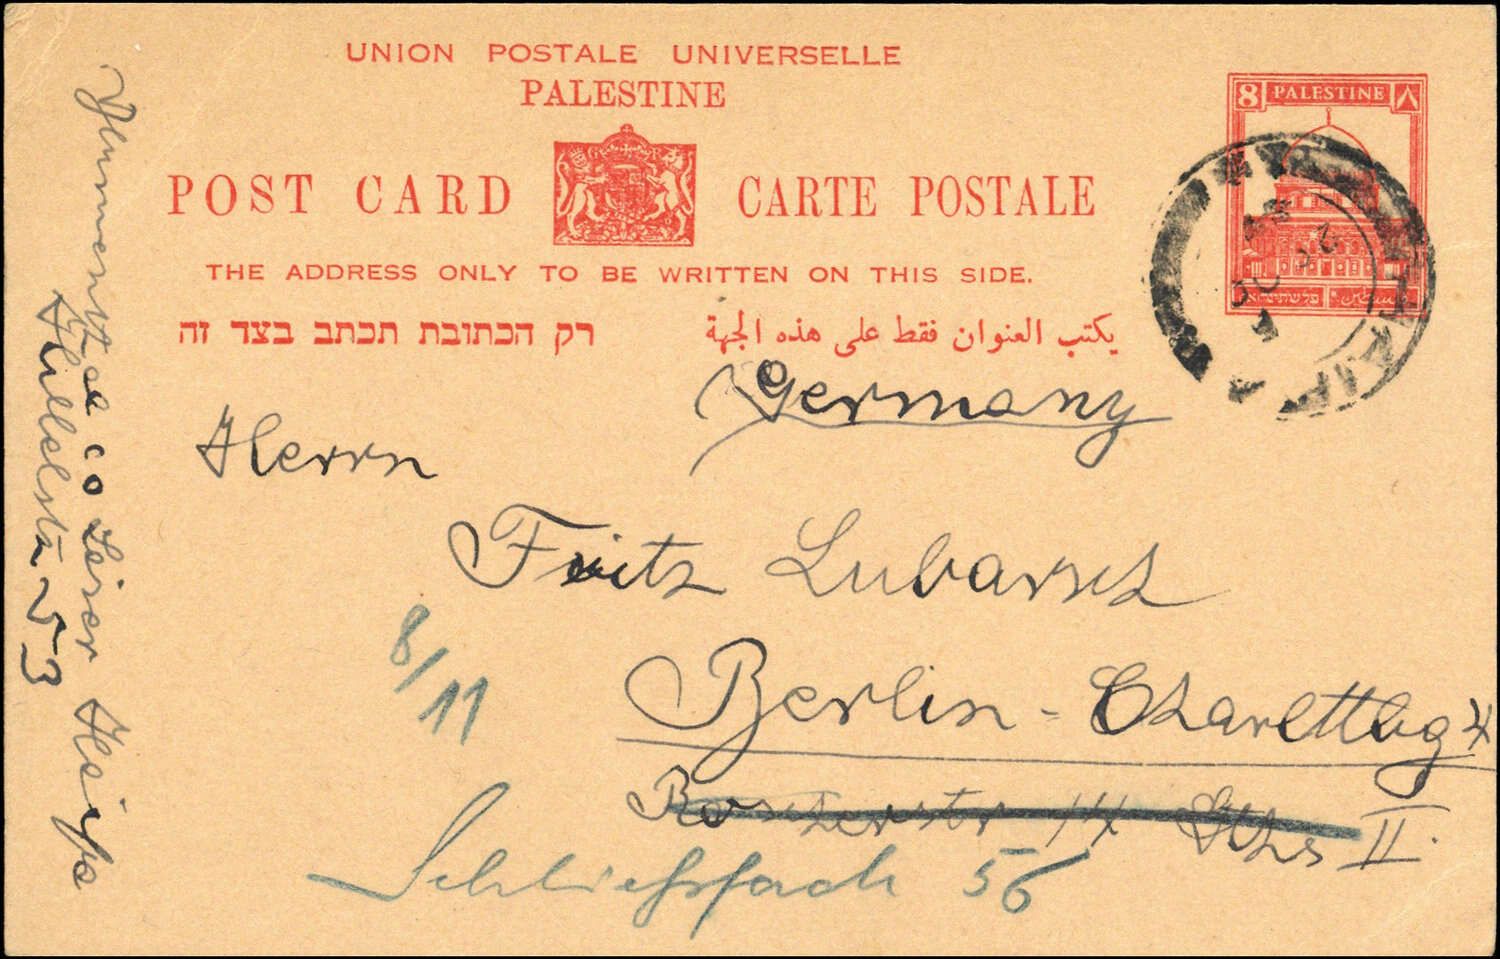 UNION POSTALE UNIVERSELLE
PALESTINE
POST CARD CARTE POSTALE
THE ADDRESS ONLY TO BE WRITTEN ON THIS SIDE.
רק הכתובת תכתב בצד זה
يكتب العنوان فقط على هذه الجهة
8 PALESTINE ٨
פלשתינה א״י فلسطين
HAIFA
Germany
Herrn
Fritz Lubarsch
Berlin - Charlttbg 4
14 II.
Schließfach 56
8/11
Blumenthal co Leiser Haifa
Hillelstr 53